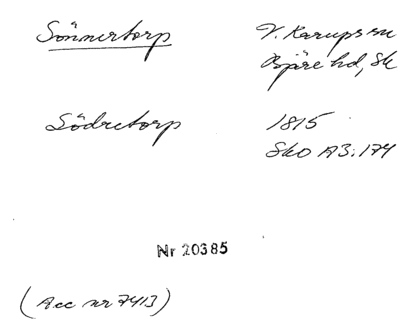 Sönnertorp V. Karups sn
Bjäre hd, Sk
Södretorp 1815
Sko A3:174
Nr 20385
(Acc nr 7413)